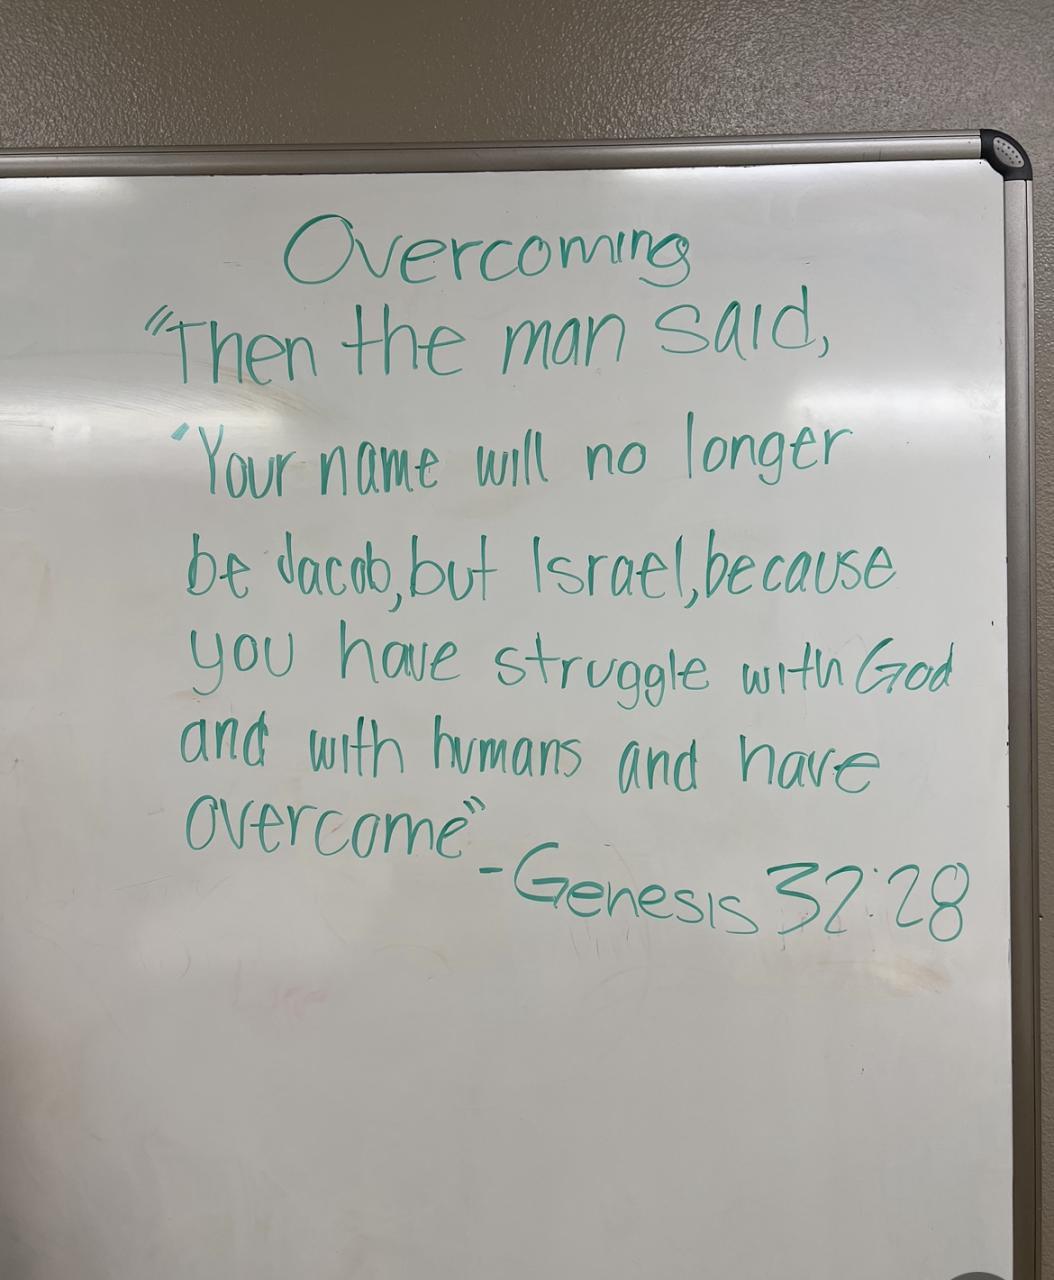 Overcoming
"Then the man said,
'Your name will no longer
be Jacob, but Israel, because
you have struggle with God
and with humans and have
overcome"
-Genesis 32:28